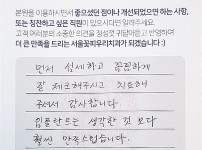 본원을 이용하시면서 좋으셨던 점이나 개선되었으면 하는 사항,
또는 칭찬하고 싶은 직원이 있으시다면 알려주세요.
고객 여러분의 소중한 의견을 정성껏 귀담아 반영하여
더 큰 만족을 드리는 서울꽃피우리치과가 되겠습니다 :)
먼저 섬세하고 꼼꼼하게
잘 체크해주시고 치료해
주셔서 감사합니다.
임플란트는 생각한 것 보다
훨씬 만족스럽습니다.